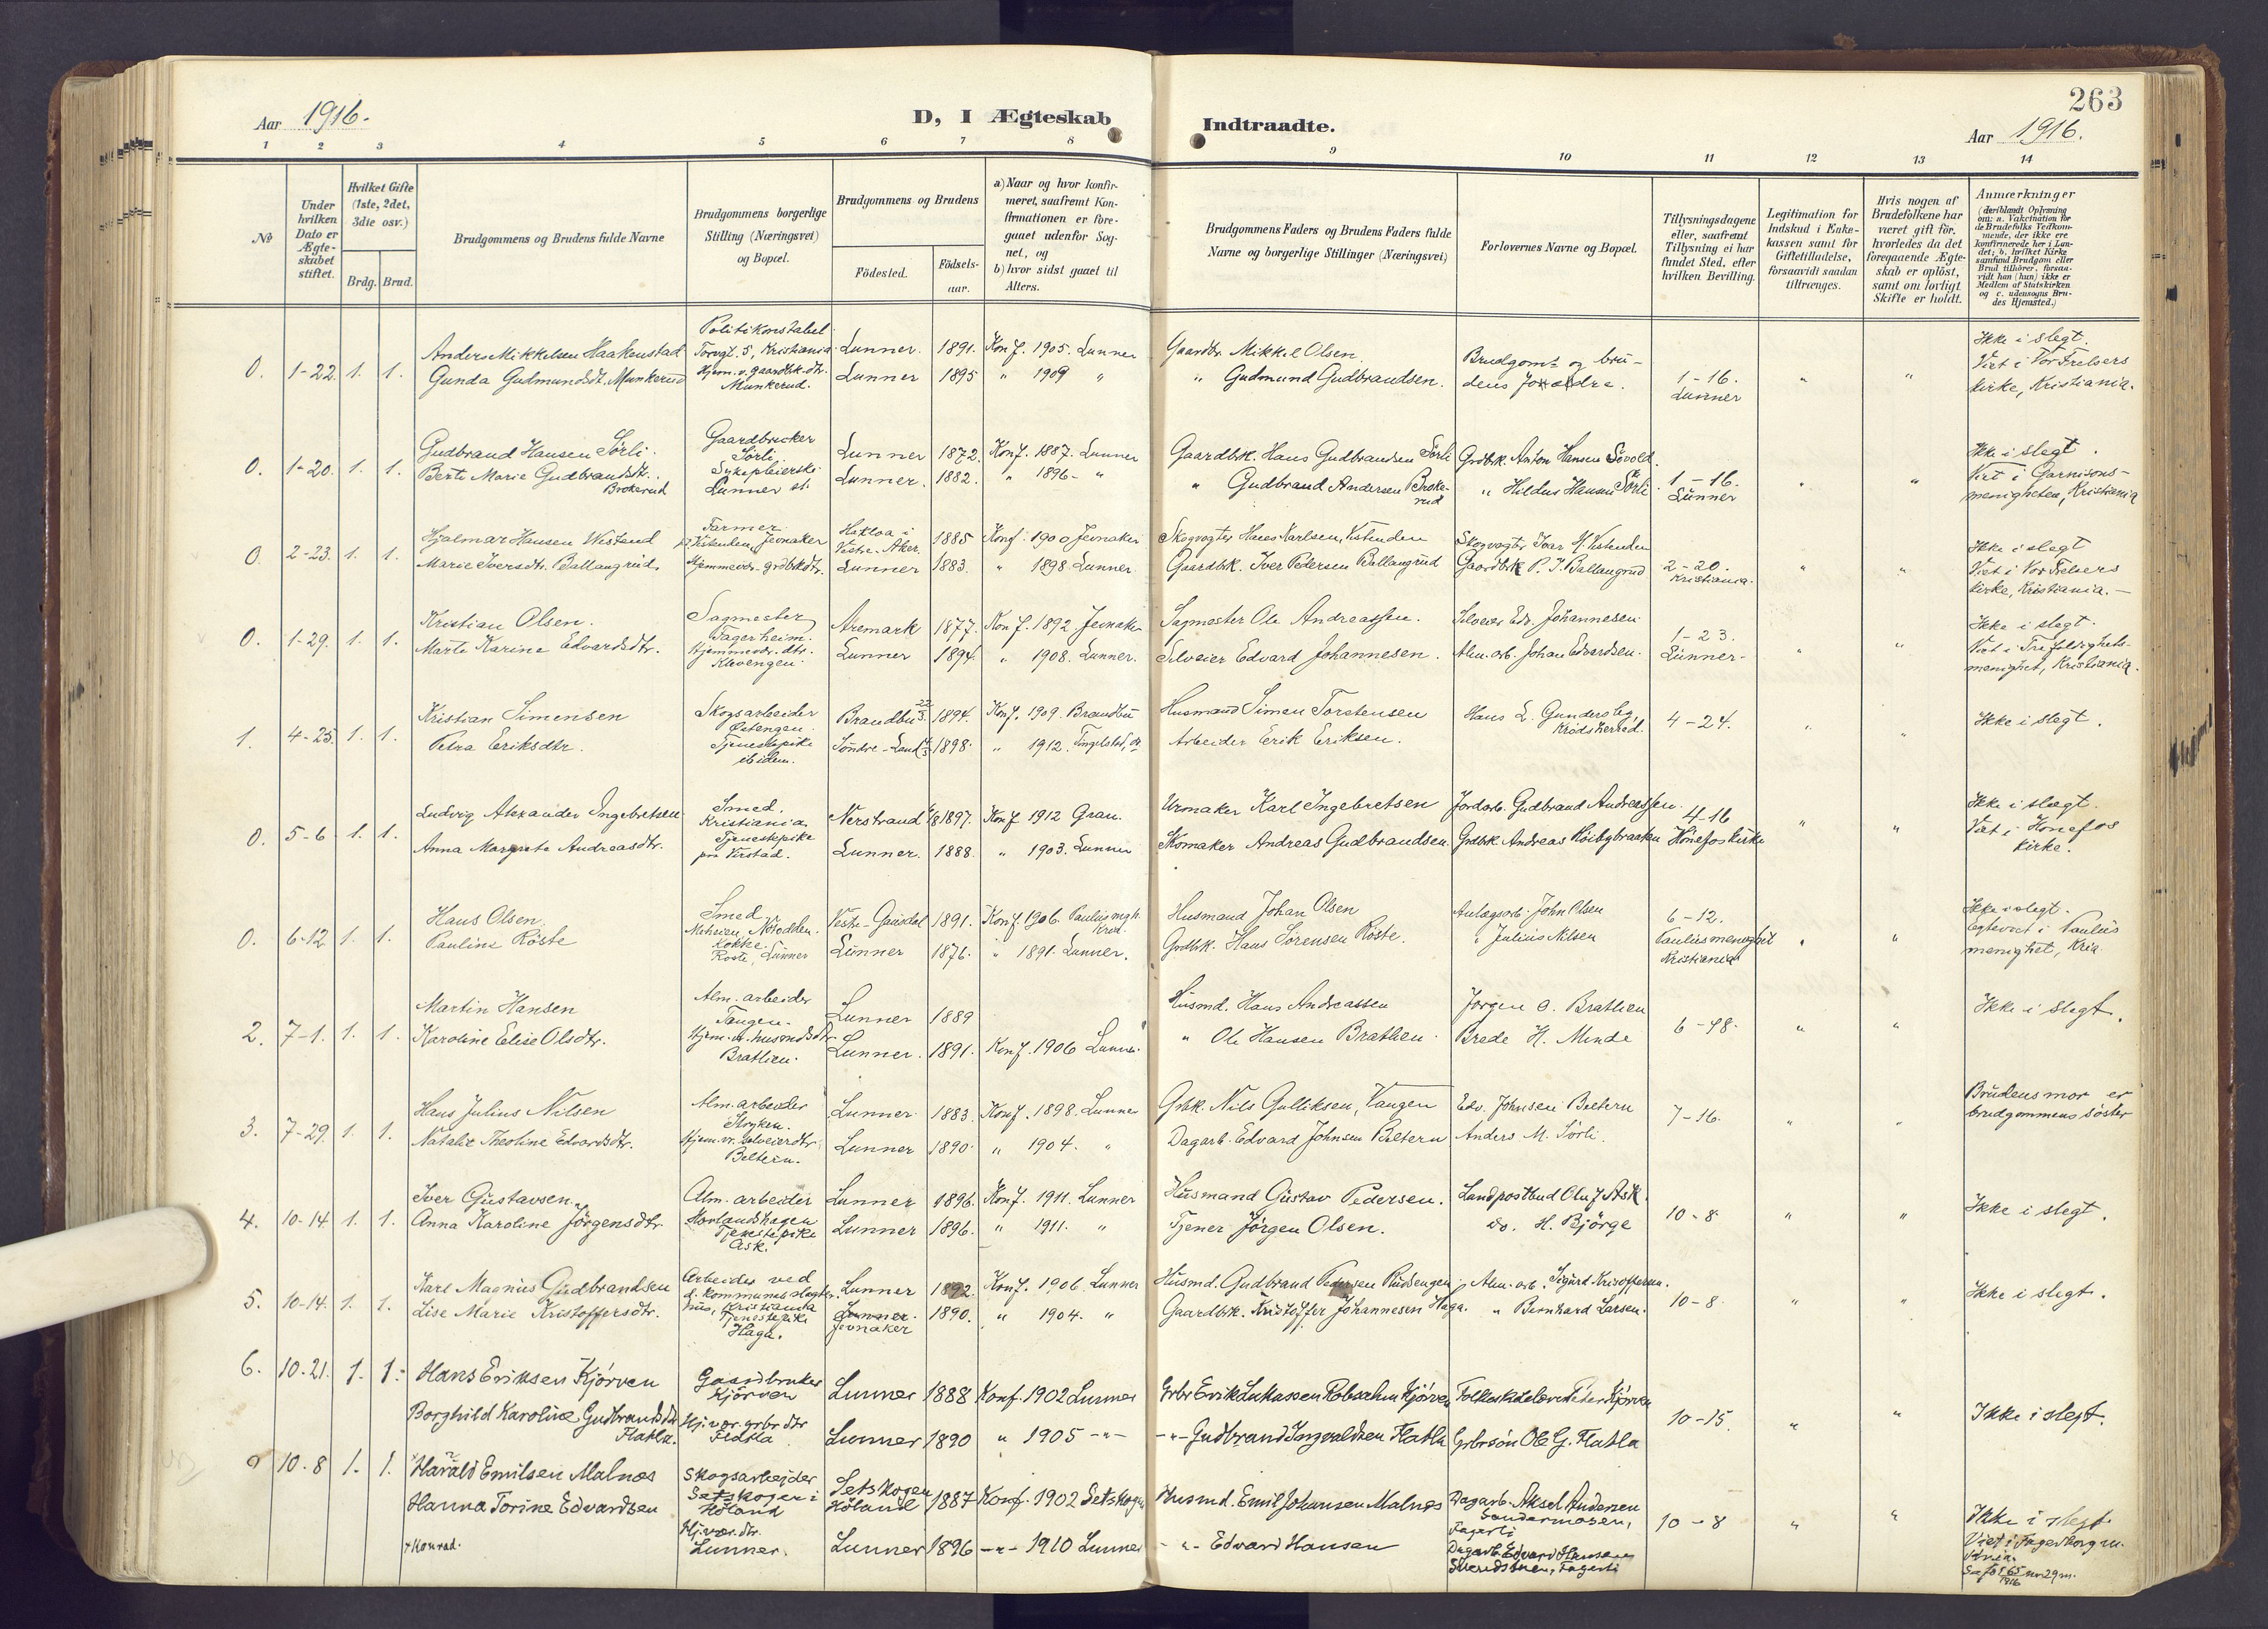 263
Aar 1916.
D, I Ægteskab Indtraadte.
Aar 1916.
1 2 3 4 5 6 7 8 9 10 11 12 13 14
No
Under hvilken Dato er Ægte-skabet stiftet.
Hvilket Gifte (1ste, 2det, 3die osv.)
Brdg. Brud.
Brudgommens og Brudens fulde Navne
Brudgommens borgerlige Stilling (Næringsvei) og Bopæl.
Brudgommens og Brudens
Födested.
Födsels-aar.
a) Naar og hvor konfir-meret, saafremt Kon-firmationen er fore-gaaet udenfor Sog-net, og
b) hvor sidst gaaet til Alters.
Brudgommens Faders og Brudens Faders fulde Navne og borgerlige Stillinger (Næringsvei)
Forlovernes Navne og Bopæl.
Tillysningsdagene eller, saafremt Tillysning ei har fundet Sted, efter hvilken Bevilling.
Legitimation for Indskud i Enke-kassen samt for Giftetilladelse, forsaavidt saadan tiltrænges.
Hvis nogen af Brudefolkene har været gift för, hvorledes da det foregaaende Ægte-skab er oplöst, samt om lovligt Skifte er holdt.
Anmærkninger
(deriblandt Oplysning om: a. Vakcination for de Brudefolks Vedkom-mende, der ikke ere konfirmerede her i Lan-det; b. hvilket Kirke samfund Brudgom eller Brud tilhörer, forsaa-vidt han (hun) ikke er Medlem af Statskirken og c. udensogns Bru-des Hjemsted.)
0. 1-22. 1. 1. Anders Mikkelsen Haakenstad Politikonstabel Torvgt. 5, Kristiania Lunner. 1891. Konf. 1905. Lunner Gaardbr. Mikkel Olsen. Brudgoms og bru- Ikke i slegt.
Gunda Gudmundsdt. Munkerud Hjem. v. gaardbk. dtr. Munkerud. Lunner 1895 " 1909 " " Gudmund Gudbrandsen. dens 1-16. Lunner " " Viet i Vor Frelsers kirke, Kristiania.
0. 1-20. 1. 1. Gudbrand Hansen Sørli. Gaardbruker Sörli Lunner 1872. Konf. 1887. Lunner Gaardbk. Hans Gudbrandsen Sörli Grdbrk. Anton Hansen Ikke i slegt.
Berte Marie Gudbrandsdt. Brokerud Sykepleierske Lunner st. Lunner. 1882. " 1896- " " Gudbrand Andersen Broke-rud " Hildus Hansen Sörli 1-16. Lunner " " Viet i Garnisons-menigheten, Kristiania
0. 2-23. 1. 1. Hjalmar Hansen Wistend Farmer Jevnaker Vestre-Aker. 1885 Konf. 1900 Jevnaker Skogvogter Hans Karlsen, Vestenden Skogvogter Ivar H. Vestenden Ikke i slegt
Marie Iversdtr. Ballangrud. Hjemmevr. grdbkdtr. Lunner 1883. " 1898 Lunner Gaardbk. Iver Pedersen Ballangrud Gaardbk P. I. Ballangrud 2-20. Kristiania. " " Viet i Vor Frelsers kirke, Kristiania.-
0. 1-29. 1. 1. Kristian Olsen. Sagmester Fagerheim. Aremark 1877. Konf. 1892 Jevnaker Sagmester Ole Andreassen. Selveier Edv. Johannesen Ikke i slegt.
Marte Karine Edvardsdtr. Hjemmevr. dtr. Klevengen. Lunner 1894. " 1908. Lunner. Selveier Edvard Johannesen. Alm. arb. Johan Edvardsen. 1-23. Lunner- " " Viet i Trefoldighets-menighet, Kristiania.
1. 4-25. 1. 1. Kristian Simensen Skogsarbeider Østengen. Brandbu 22/3. 1894. Konf. 1909. Brandbu Husmand Simen Torstensen Hans L. Gundersby, Krödsherred. 4-24. " " Ikke i slegt.
Petra Eriksdtr. Tjenestepike ibidem. Söndre-Land 1898. " 1912. Tingelstad, Arbeider Erik Eriksen.
0. 5-6 1. 1. Ludvig Alexander Ingebretsen Smed. Kristiania Nerstrand 1897. Konf 1912 Gran. Urmaker Karl Ingebretsen Jordarb. Gudbrand Andreassen. 4-16 Hönefos kirke " " Ikke i slegt.
Anna Margrete Andreasdtr. Tjenestepike paa Virstad. Lunner. 1888. " 1903. Lunner Skomaker Andreas Gudbrandsen. Grdbk. Andreas Höibybraaten Viet i Hönefos kirke.
0. 6-12 1. 1. Hans Olsen. Smed Notodden. Vestre-Gausdal 1891. Konf. 1906. Paulus mgh. Krist. Husmand Johan Olsen Anlægsarb. John Olsen 6-12. Ikke i slegt.
Pauline Röste Kokke. Roste, Lunner Lunner 1876. " 1891. Lunner. Grdbk. Hans Sörensen Röste. " Julius Nilsen Paulus menighet Kristiania " " egteviet i Paulus menighet, Kria.
2. 7-1. 1. 1. Martin Hansen Alm. arbeider Tangen. Lunner 1889 Husmd. Hans Andreassen Jørgen O. Brathen Ikke i slegt.
Karoline Elise Olsdtr. Hjem.vr. husmdsdtr. Brathen. Lunner. 1891. Konf. 1906 Lunner. " Ole Hansen Brathen. Brede H. Minde 6-18. " "
3. 7-29. 1. 1. Hans Julius Nilsen Alm. arbeider Lunner. 1883. Konf. 1898. Lunner Gbk. Nils Gulliksen, Vangen Edv. Johnsen Beltern 7-16. " " Brudens mor er brudgommens söster
Natalie Theoline Edvardsdtr. Hjem.vr. selveierdtr. Beltern. Lunner 1890. " 1904. " Dagarb. Edvard Johnsen Beltern Anders M. Sörli.
4. 10-14 1. 1. Iver Gustavsen. Alm. arbeider Hovlandshagen Lunner 1896. Konf. 1911. Lunner Husmand Gustav Pedersen. Landpostbud Oluf Ask. 10-8 " " Ikke i slegt.
Anna Karoline Jörgensdtr. Tjenestepike Ask. Lunner 1896. " 1911. " Tjener Jörgen Olsen. do. H. Björge
5. 10-14. 1. 1. Karl Magnus Gudbrandsen Arbeider ved d. kommunes slagte-hus, Kristiania Lunner 1892. Konf. 1906. Lunner Husmd. Gudbrand Pedersen Rudsengen. Alm. arb. Sigurd Kristoffersen. Ikke i slegt.
Lise Marie Kristoffersdtr. Tjenestepike Haga. Lunner. Jevnaker 1890. " 1904. " Gaardbk. Kristoffer Johannesen Haga. " Bernhard Larsen. 10-8 " "
6. 10-21. 1. 1. Hans Eriksen Kjørven Gaardbruker Kjörven Lunner 1888 Konf. 1902 Lunner Grbr Erik Lukassen Kjörven Peter Kjörven
Borghild Karoline Gudbrandsdtr Flatla. Hj.vær. grbr dtr Flatla Lunner 1890 " 1905 -"- -"- Gudbrand Ingvaldsen Flatla Grbrsön Ole G. Flatla 10-15. " " Ikke i slegt.
0 10-8 1. 1. Harald Emilsen Malnes Skogsarbejder Setskogen i Höland Setskogen Höland 1887 Konf. 1902 Setskogen Husmd. Emil Johansen Malnes Dagarb. Aksel Andersen Sandermosen, Fagerli
Hanna Torine Edvardsen Hj.vær. dtr. Lunner. Lunner 1896 -"- 1910 Lunner -"- Edvard Hansen Dagarb. Edvard Hansen, Fagerli 10-8 " " Ikke i slegt.
Konrad. Viet i Fagerborg m. Kria.
1916 no 29 m.